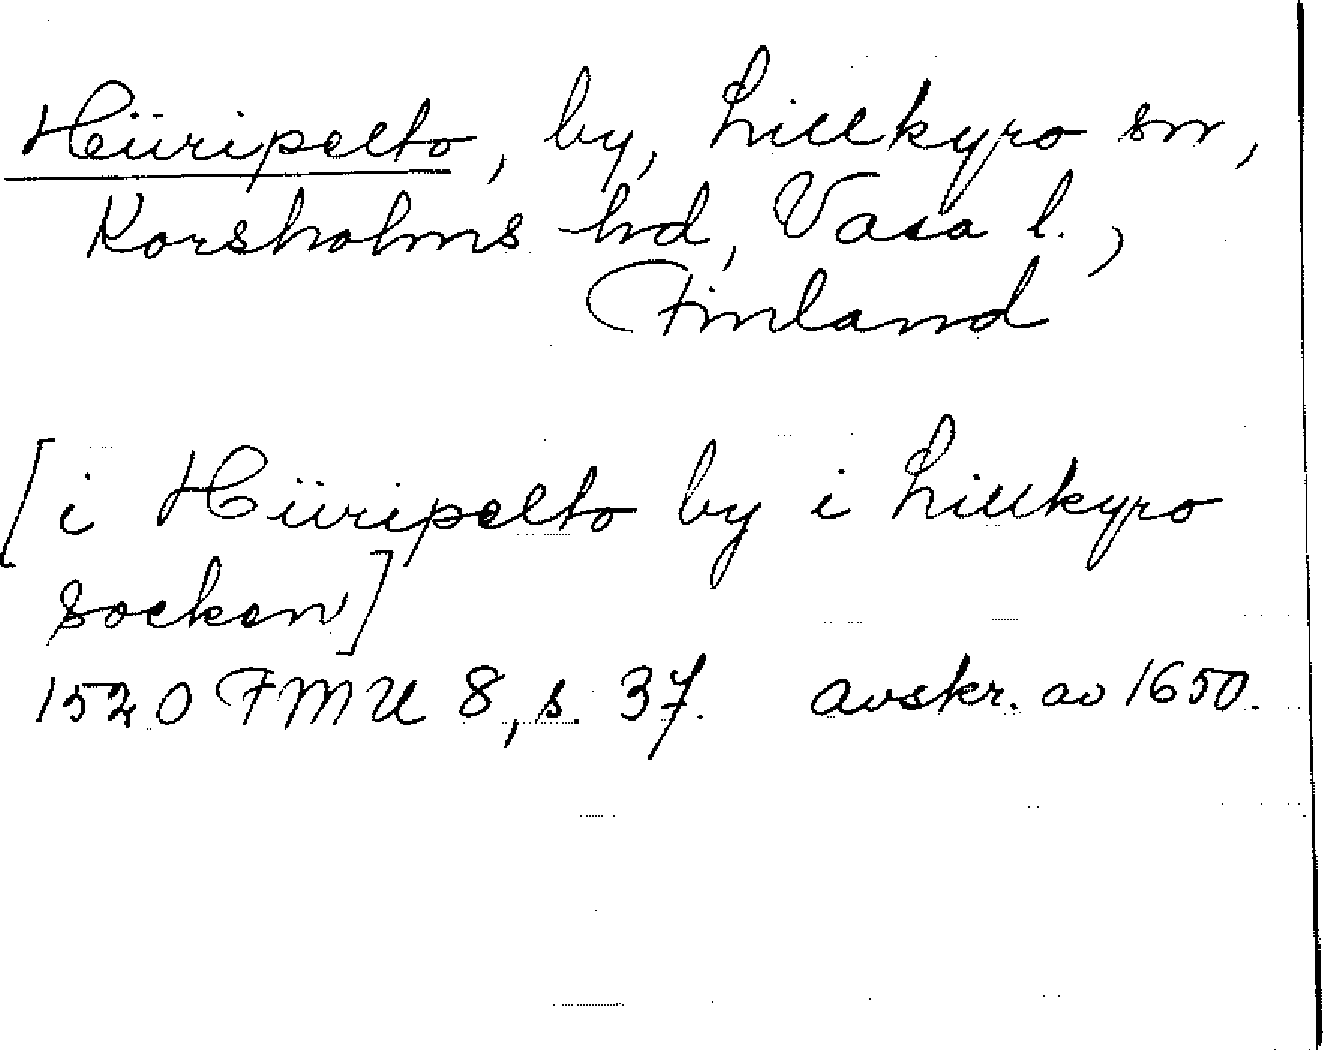 Hiiripelto, by, Lillkyro sn,
Korsholms hd, Vasa l.,
Finland
[i Hiiripelto by i Lillkyro
socken]
1520 FMU 8, s. 37. avskr. av 1650.